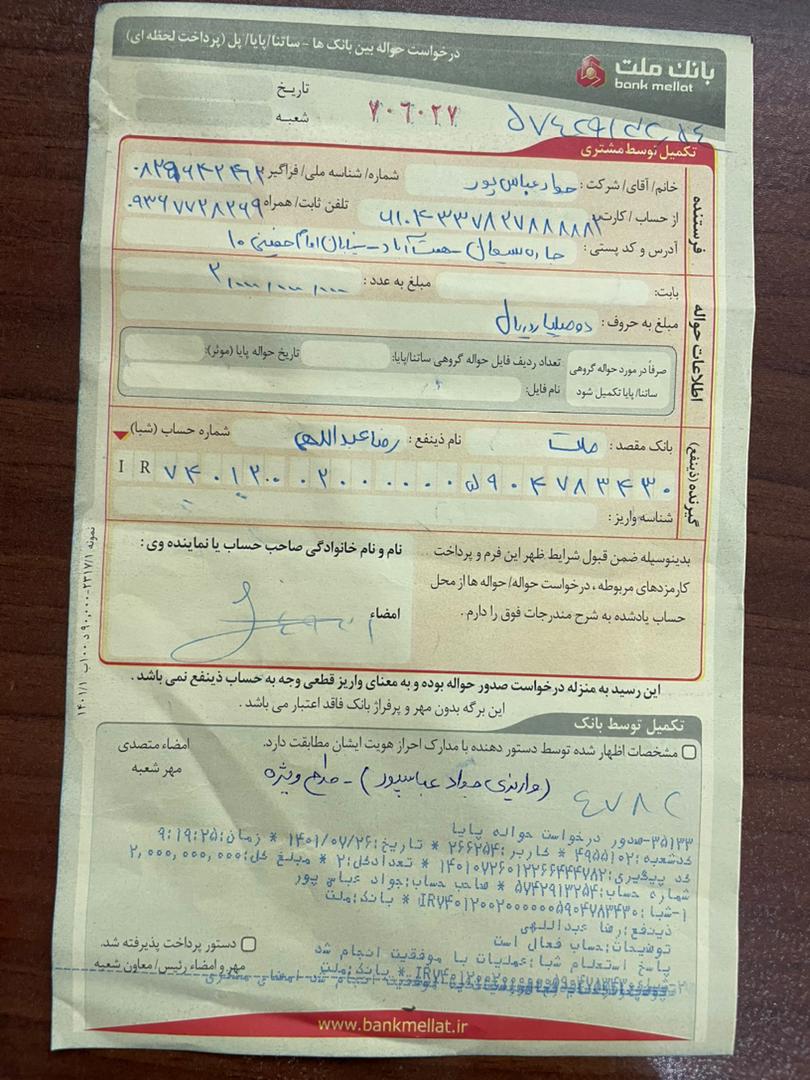 درخواست حواله بین بانک ها - ساتنا/پایا/پل (پرداخت لحظه ای)
بانک ملت
bank mellat
تاریخ
شعبه
۷۰۶۰۲۷
تکمیل توسط مشتری
فرستنده
خانم/ آقای/ شرکت: جواد عباس پور شماره/ شناسه ملی/ فراگیر
از حساب/ کارت: تلفن ثابت/ همراه: ۰۹۳۶۷۷۲۸۲۶۹
آدرس و کد پستی: همت آباد - خیابان امام خمینی ۱۰
اطلاعات حواله
بابت: مبلغ به عدد: ۲,۰۰۰,۰۰۰,۰۰۰
مبلغ به حروف: دو میلیارد ریال
صرفاً در مورد حواله گروهی ساتنا/ پایا تکمیل شود
تعداد ردیف فایل حواله گروهی ساتنا/پایا: تاریخ حواله پایا (موثر):
نام فایل:
گیرنده (ذینفع)
بانک مقصد: ملت نام ذینفع: رضا عبداللهی شماره حساب (شبا)
IR ۷۴۰۱۲۰۰۲۰۰۰۰۰۰۵۹۰۴۷۸۳۴۳۰
شناسه واریز:
بدینوسیله ضمن قبول شرایط ظهر این فرم و پرداخت
کارمزدهای مربوطه، درخواست حواله/ حواله ها از محل
حساب یادشده به شرح مندرجات فوق را دارم.
نام و نام خانوادگی صاحب حساب یا نماینده وی:
امضاء
این رسید به منزله درخواست صدور حواله بوده و به معنای واریز قطعی وجه به حساب ذینفع نمی باشد.
این برگه بدون مهر و پرفراژ بانک فاقد اعتبار می باشد.
تکمیل توسط بانک
مشخصات اظهار شده توسط دستور دهنده با مدارک احراز هویت ایشان مطابقت دارد.
امضاء متصدی
مهر شعبه
(واریزی جواد عباسپور) -
۳۵۱۳۳-صدور درخواست حواله پایا
کدشعبه:۴۹۵۵۱۰۲ * کاربر:۲۶۶۲۵۴ * تاریخ:۱۴۰۱/۰۷/۲۶ * زمان:۹:۱۹:۲۵
کد پیگیری:۱۴۰۱۰۷۲۶۰۱۲۲۶۶۴۴۴۷۸۲ * تعدادکل:۲ * مبلغ کل:۲,۰۰۰,۰۰۰,۰۰۰
شماره حساب:۵۷۴۲۹۱۳۲۵۴ * صاحب حساب:جواد عباس پور
۱-شبا:IR۷۴۰۱۲۰۰۲۰۰۰۰۰۰۵۹۰۴۷۸۳۴۳۰ * بانک:ملت
ذینفع:رضا عبداللهی
توضیحات:حساب فعال است
پاسخ استعلام شبا:عملیات با موفقیت انجام شد
دستور پرداخت پذیرفته شد.
مهر و امضاء رئیس/ معاون شعبه
www.bankmellat.ir